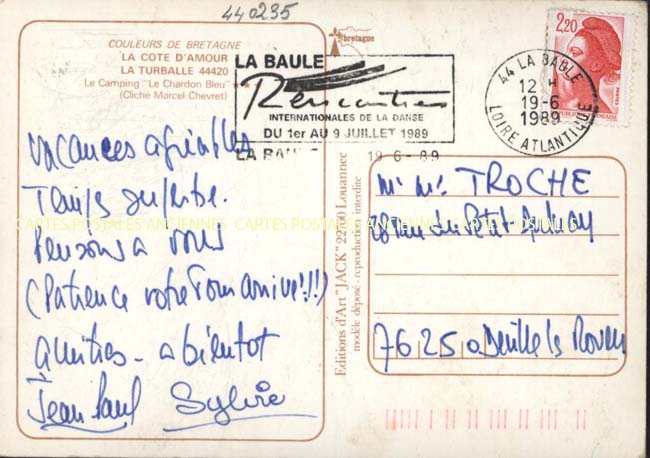 440235
COULEURS DE BRETAGNE
LA COTE D'AMOUR
LA TURBALLE 44420
Le Camping "Le Chardon Bleu" **
(Cliché Marcel Chevret)
bretagne
LA BAULE
Rencontres
INTERNATIONALES DE LA DANSE
DU 1er AU 9 JUILLET 1989
LA BAULE 19-6-89
44 LA BAULE
12 H
19-6
1989
LOIRE ATLANTIQUE
2,20
Vacances agréables
Temps superbe.
Pensons à vous
(Patience votre tour arrive!!!)
Amitiés - a bientot
Jean Paul Sylvie
CARTES POSTALES ANCIENNES CARTES POSTALES ANCIENNES
Editions d'Art "JACK" 22760 Louannec
modèle déposé - reproduction interdite
Mr Me TROCHE
28 rue du Petit
76250 Deville les Rouen